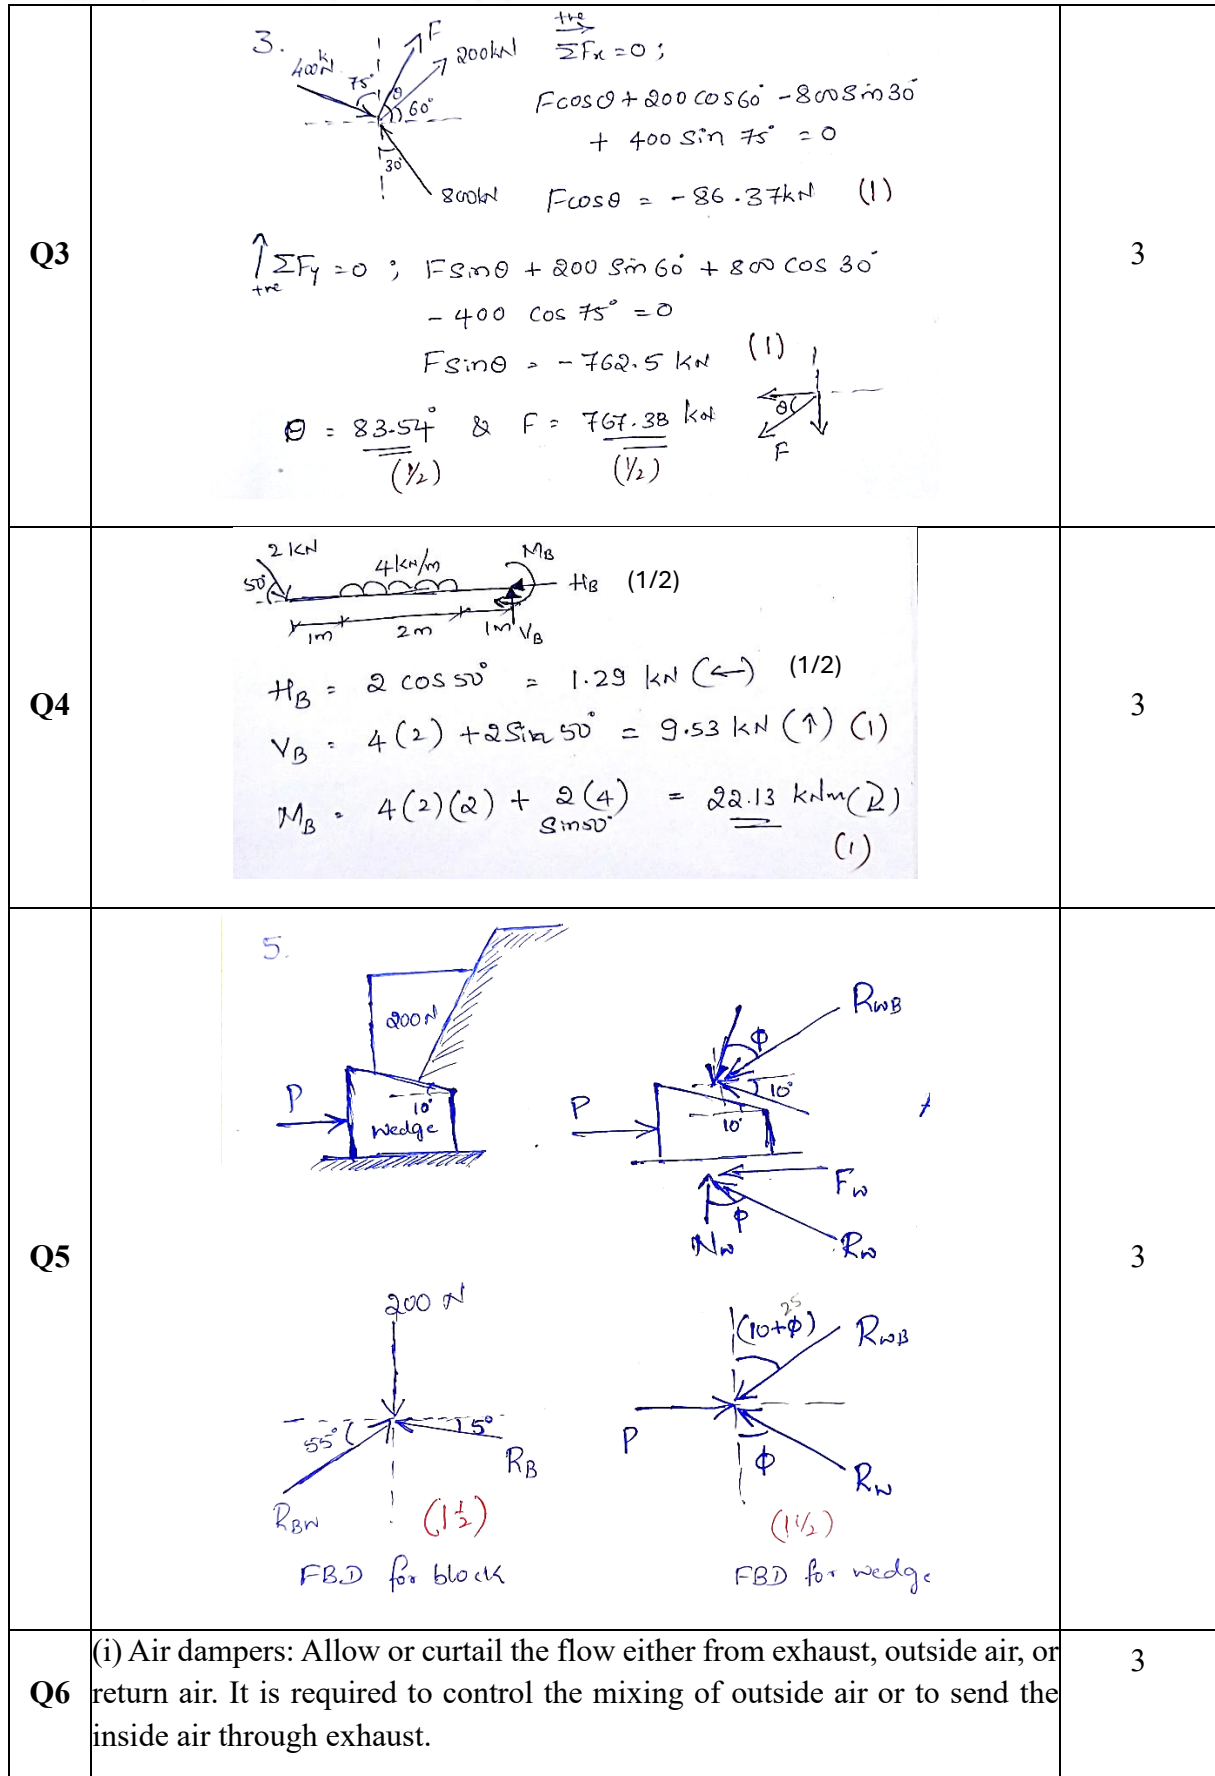 Q3
3.
400kN
75°
F
200kN
θ
60°
30°
800kN
+ve
ΣFx = 0 ;
Fcosθ + 200 cos60° - 800 Sin 30°
+ 400 Sin 75° = 0
Fcosθ = - 86.37kN (1)
+ve
ΣFy = 0 ; FSinθ + 200 Sin 60° + 800 cos 30°
- 400 cos 75° = 0
Fsinθ = - 762.5 kN (1)
θ = 83.54° & F = 767.38 kN
(1/2) (1/2)
θ
F
3
Q4
2 KN
50°
4kN/m
MB
HB (1/2)
1m 2m 1m VB
HB = 2 cos 50° = 1.29 kN (←) (1/2)
VB = 4(2) + 2 Sin 50° = 9.53 kN (↑) (1)
MB = 4(2)(2) + 2(4) = 22.13 kNm
Sin50°
(1)
3
Q5
5.
200N
P
10°
wedge
P
ϕ
RWB
10°
10°
FW
ϕ
NW
RW
200 N
55°
5°
RB
RBW
(1 1/2)
FBD for block
25
(10+ϕ)
RWB
P
ϕ
RW
(1 1/2)
FBD for wedge
3
Q6
(i) Air dampers: Allow or curtail the flow either from exhaust, outside air, or
return air. It is required to control the mixing of outside air or to send the
inside air through exhaust.
3